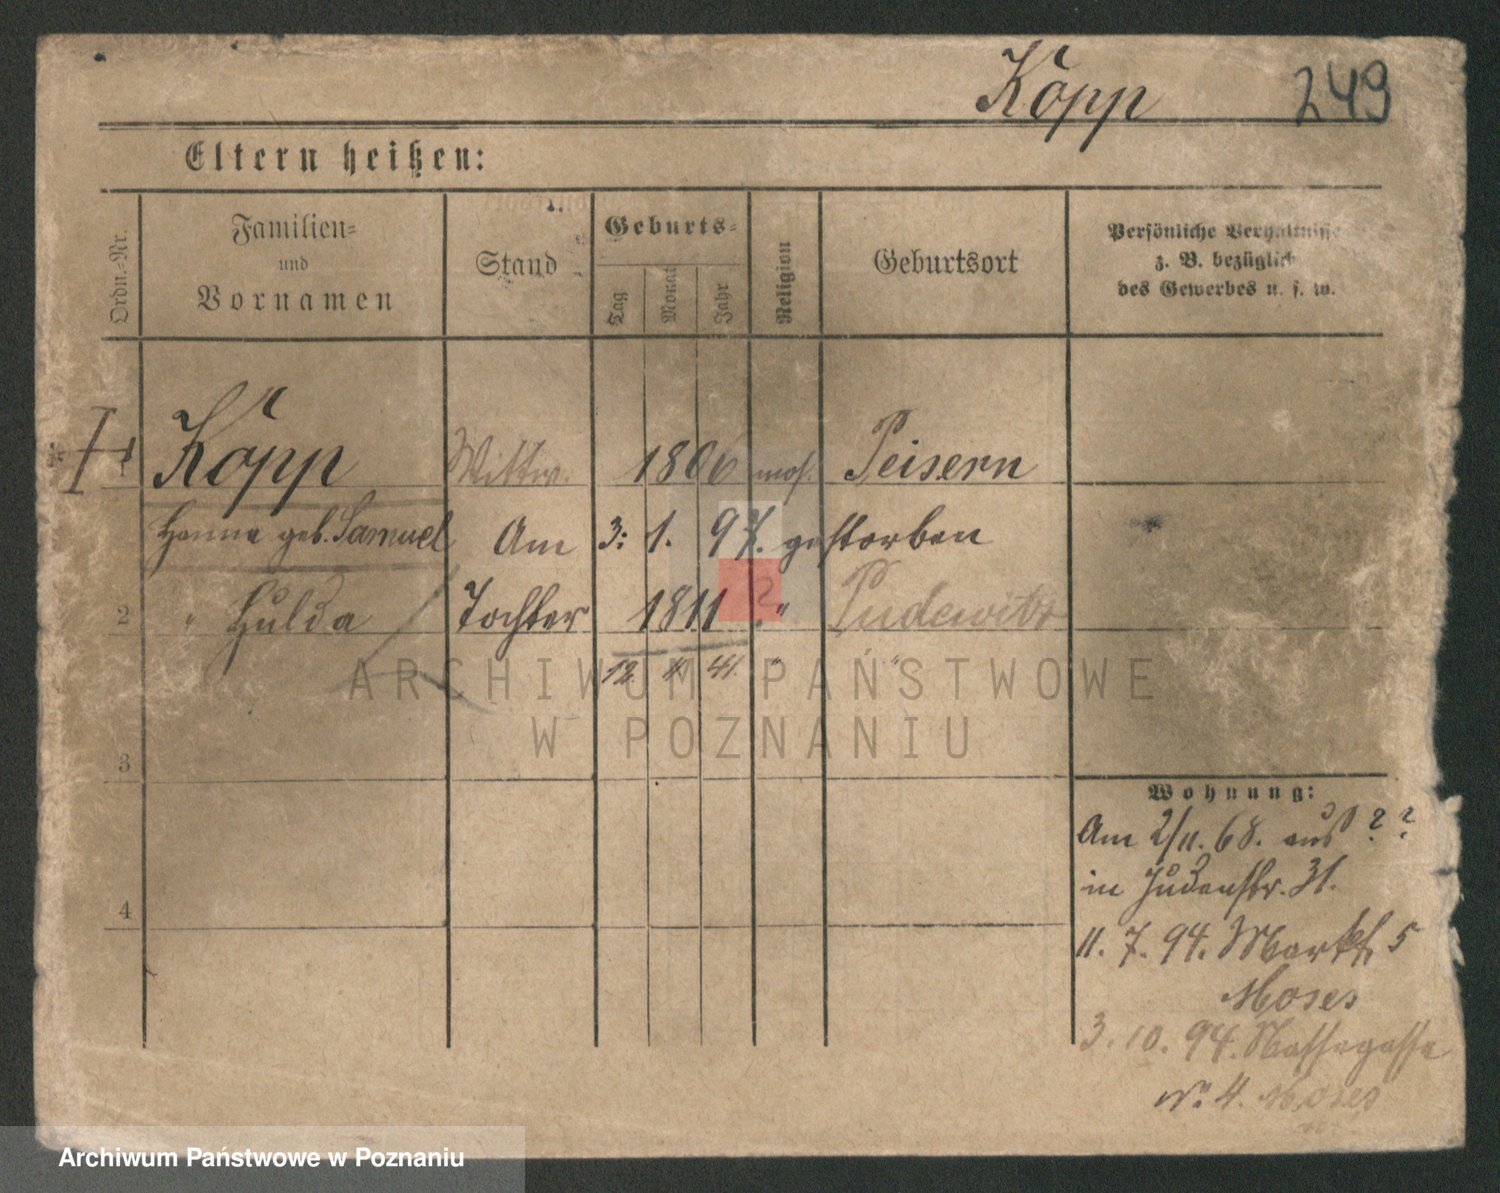 Köpp 249
Eltern heißen:
Ordn.=Nr.
Familien=
und
Vornamen
Stand
Geburts=
Tag
Monat
Jahr
Religion
Geburtsort
Persönliche Verhältnisse
z. B. bezüglich
des Gewerbes u. s. w.
1 Köpp Wittw. 1806 mos. Peisern
Hanna geb. Samuel Am 3. 1. 97. gestorben
2 " Hulda Tochter 1811 " Pudewitz
12. 41. " "
3
4
Wohnung:
Am 2/11. 68. aus ? ?
in Judenstr. 31.
11. 7. 94. Markt 5
Moses
3. 10. 94. Nassegasse
No. 4. Moses
ARCHIWUM PAŃSTWOWE
W POZNANIU
Archiwum Państwowe w Poznaniu